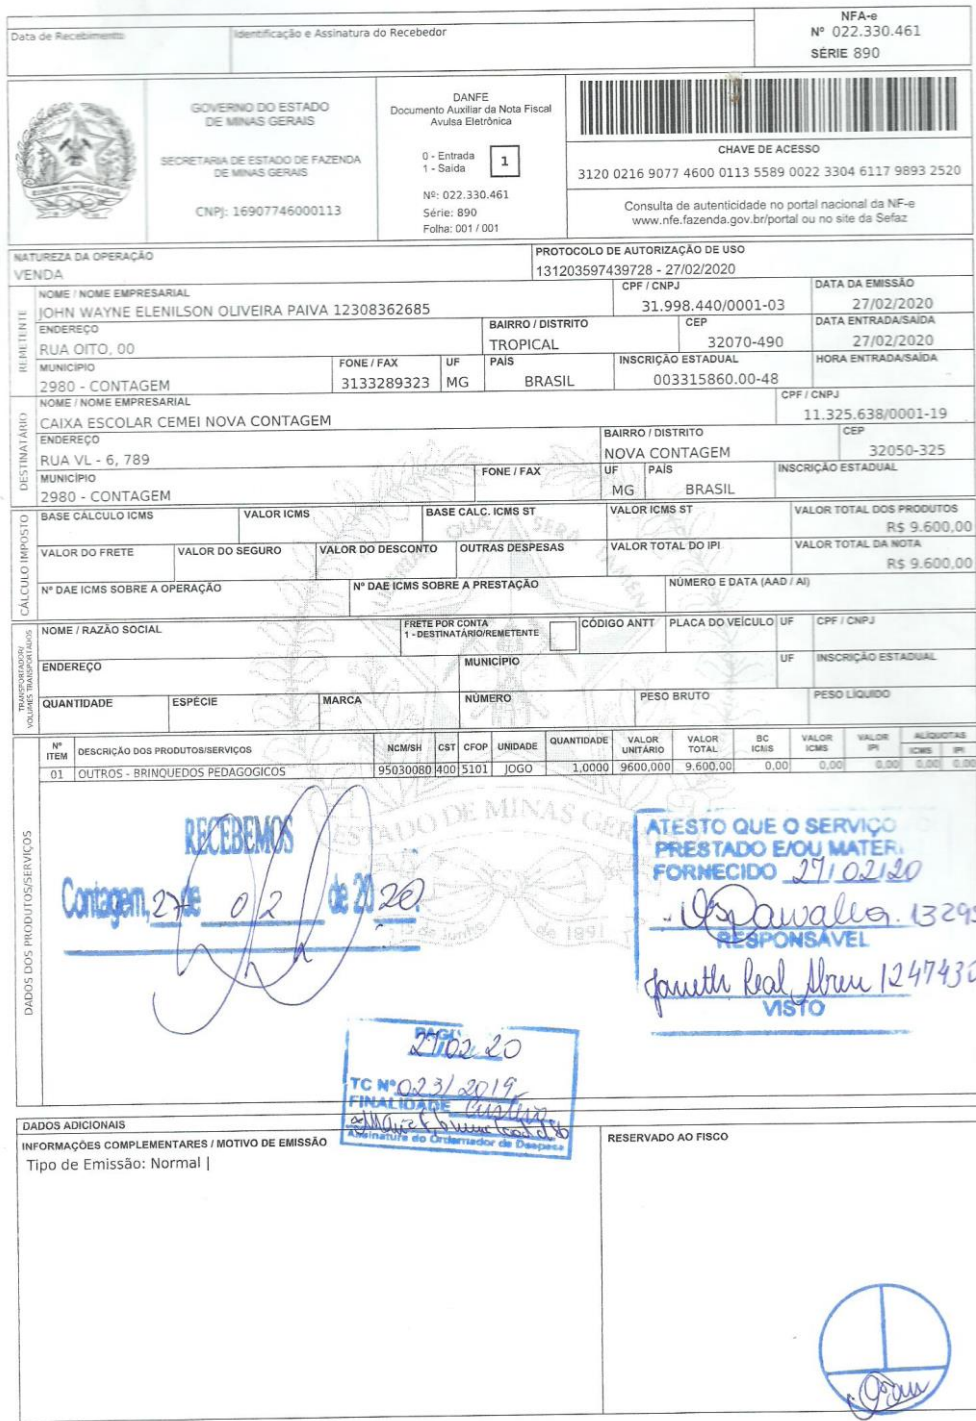 NFA-e
Nº 022.330.461
SÉRIE 890
Data de Recebimento
Identificação e Assinatura do Recebedor
GOVERNO DO ESTADO
DE MINAS GERAIS
SECRETARIA DE ESTADO DE FAZENDA
DE MINAS GERAIS
CNPJ: 16907746000113
DANFE
Documento Auxiliar da Nota Fiscal
Avulsa Eletrônica
0 - Entrada
1 - Saída
1
Nº: 022.330.461
Série: 890
Folha: 001 / 001
CHAVE DE ACESSO
3120 0216 9077 4600 0113 5589 0022 3304 6117 9893 2520
Consulta de autenticidade no portal nacional da NF-e
www.nfe.fazenda.gov.br/portal ou no site da Sefaz
NATUREZA DA OPERAÇÃO
VENDA
PROTOCOLO DE AUTORIZAÇÃO DE USO
131203597439728 - 27/02/2020
REMETENTE
NOME / NOME EMPRESARIAL
JOHN WAYNE ELENILSON OLIVEIRA PAIVA 12308362685
CPF / CNPJ
31.998.440/0001-03
DATA DA EMISSÃO
27/02/2020
ENDEREÇO
RUA OITO, 00
BAIRRO / DISTRITO
TROPICAL
CEP
32070-490
DATA ENTRADA/SAÍDA
27/02/2020
MUNICÍPIO
2980 - CONTAGEM
FONE / FAX
3133289323
UF
MG
PAÍS
BRASIL
INSCRIÇÃO ESTADUAL
003315860.00-48
HORA ENTRADA/SAÍDA
DESTINATÁRIO
NOME / NOME EMPRESARIAL
CAIXA ESCOLAR CEMEI NOVA CONTAGEM
CPF / CNPJ
11.325.638/0001-19
ENDEREÇO
RUA VL - 6, 789
BAIRRO / DISTRITO
NOVA CONTAGEM
CEP
32050-325
MUNICÍPIO
2980 - CONTAGEM
FONE / FAX
UF
MG
PAÍS
BRASIL
INSCRIÇÃO ESTADUAL
CÁLCULO IMPOSTO
BASE CÁLCULO ICMS
VALOR ICMS
BASE CALC. ICMS ST
VALOR ICMS ST
VALOR TOTAL DOS PRODUTOS
R$ 9.600,00
VALOR DO FRETE
VALOR DO SEGURO
VALOR DO DESCONTO
OUTRAS DESPESAS
VALOR TOTAL DO IPI
VALOR TOTAL DA NOTA
R$ 9.600,00
Nº DAE ICMS SOBRE A OPERAÇÃO
Nº DAE ICMS SOBRE A PRESTAÇÃO
NÚMERO E DATA (AAD / AI)
TRANSPORTADOR/
VOLUMES TRANSPORTADOS
NOME / RAZÃO SOCIAL
FRETE POR CONTA
1 - DESTINATÁRIO/REMETENTE
CÓDIGO ANTT
PLACA DO VEÍCULO
UF
CPF / CNPJ
ENDEREÇO
MUNICÍPIO
UF
INSCRIÇÃO ESTADUAL
QUANTIDADE
ESPÉCIE
MARCA
NÚMERO
PESO BRUTO
PESO LÍQUIDO
DADOS DOS PRODUTOS/SERVIÇOS
Nº ITEM DESCRIÇÃO DOS PRODUTOS/SERVIÇOS NCM/SH CST CFOP UNIDADE QUANTIDADE VALOR UNITÁRIO VALOR TOTAL BC ICMS VALOR ICMS VALOR IPI ALÍQUOTAS ICMS IPI
01 OUTROS - BRINQUEDOS PEDAGOGICOS 95030080 400 5101 JOGO 1,0000 9600,000 9.600,00 0,00 0,00 0,00 0,00 0,00
ESTADO DE MINAS GER
15 de Junho de 1891
RECEBEMOS
Contagem, 27 de 02 de 20 20.
ATESTO QUE O SERVIÇO
PRESTADO E/OU MATER
FORNECIDO 27/02/20
1329
RESPONSÁVEL
Janeth Leal Abreu 124743
VISTO
27 02 20
TC Nº 023/2019
FINALIDADE Custeio
Assinatura do Ordenador de Despesa
DADOS ADICIONAIS
INFORMAÇÕES COMPLEMENTARES / MOTIVO DE EMISSÃO
Tipo de Emissão: Normal |
RESERVADO AO FISCO